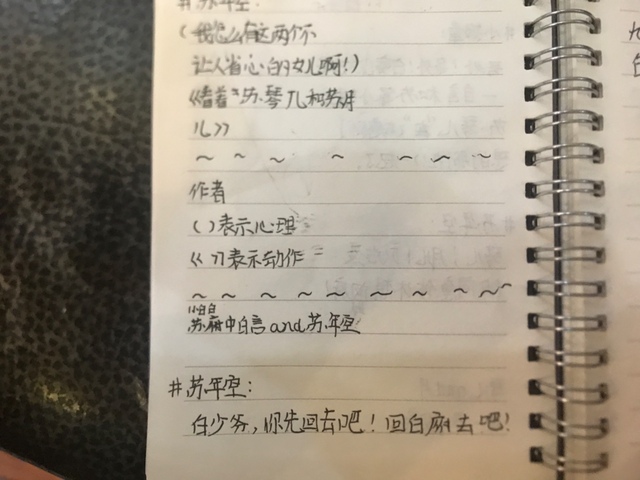 #苏年堂:
(我怎么有这两个不
让人省心的女儿啊!)
《看着苏琴儿和苏月
儿》
~ ~ ~ ~ ~ ~ ~
作者
( )表示心理
《 》表示动作
~ ~ ~ ~ ~ ~ ~ ~ ~
苏府中白言and苏年堂
#苏年堂:
白少爷,你先回去吧!回白府去吧!